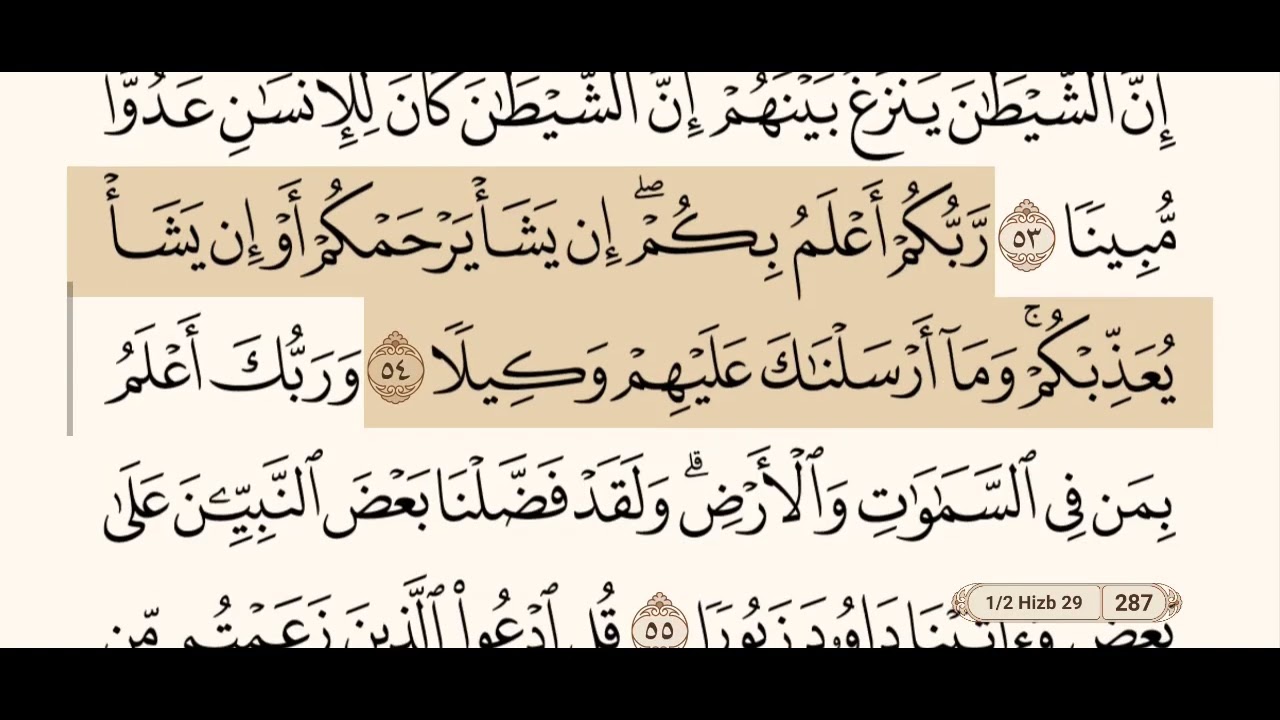 إِنَّ ٱلشَّيْطَٰنَ يَنزَغُ بَيْنَهُمْ إِنَّ ٱلشَّيْطَٰنَ كَانَ لِلْإِنسَٰنِ عَدُوًّا
مُّبِينًا ٥٣ رَّبُّكُمْ أَعْلَمُ بِكُمْ ۖ إِن يَشَأْ يَرْحَمْكُمْ أَوْ إِن يَشَأْ
يُعَذِّبْكُمْ ۚ وَمَآ أَرْسَلْنَٰكَ عَلَيْهِمْ وَكِيلًا ٥٤ وَرَبُّكَ أَعْلَمُ
بِمَن فِى ٱلسَّمَٰوَٰتِ وَٱلْأَرْضِ ۗ وَلَقَدْ فَضَّلْنَا بَعْضَ ٱلنَّبِيِّۦنَ عَلَىٰ
بَعْضٍ وَءَاتَيْنَا دَاوُۥدَ زَبُورًا ٥٥ قُلِ ٱدْعُوا۟ ٱلَّذِينَ زَعَمْتُم مِّن
1/2 Hizb 29 287